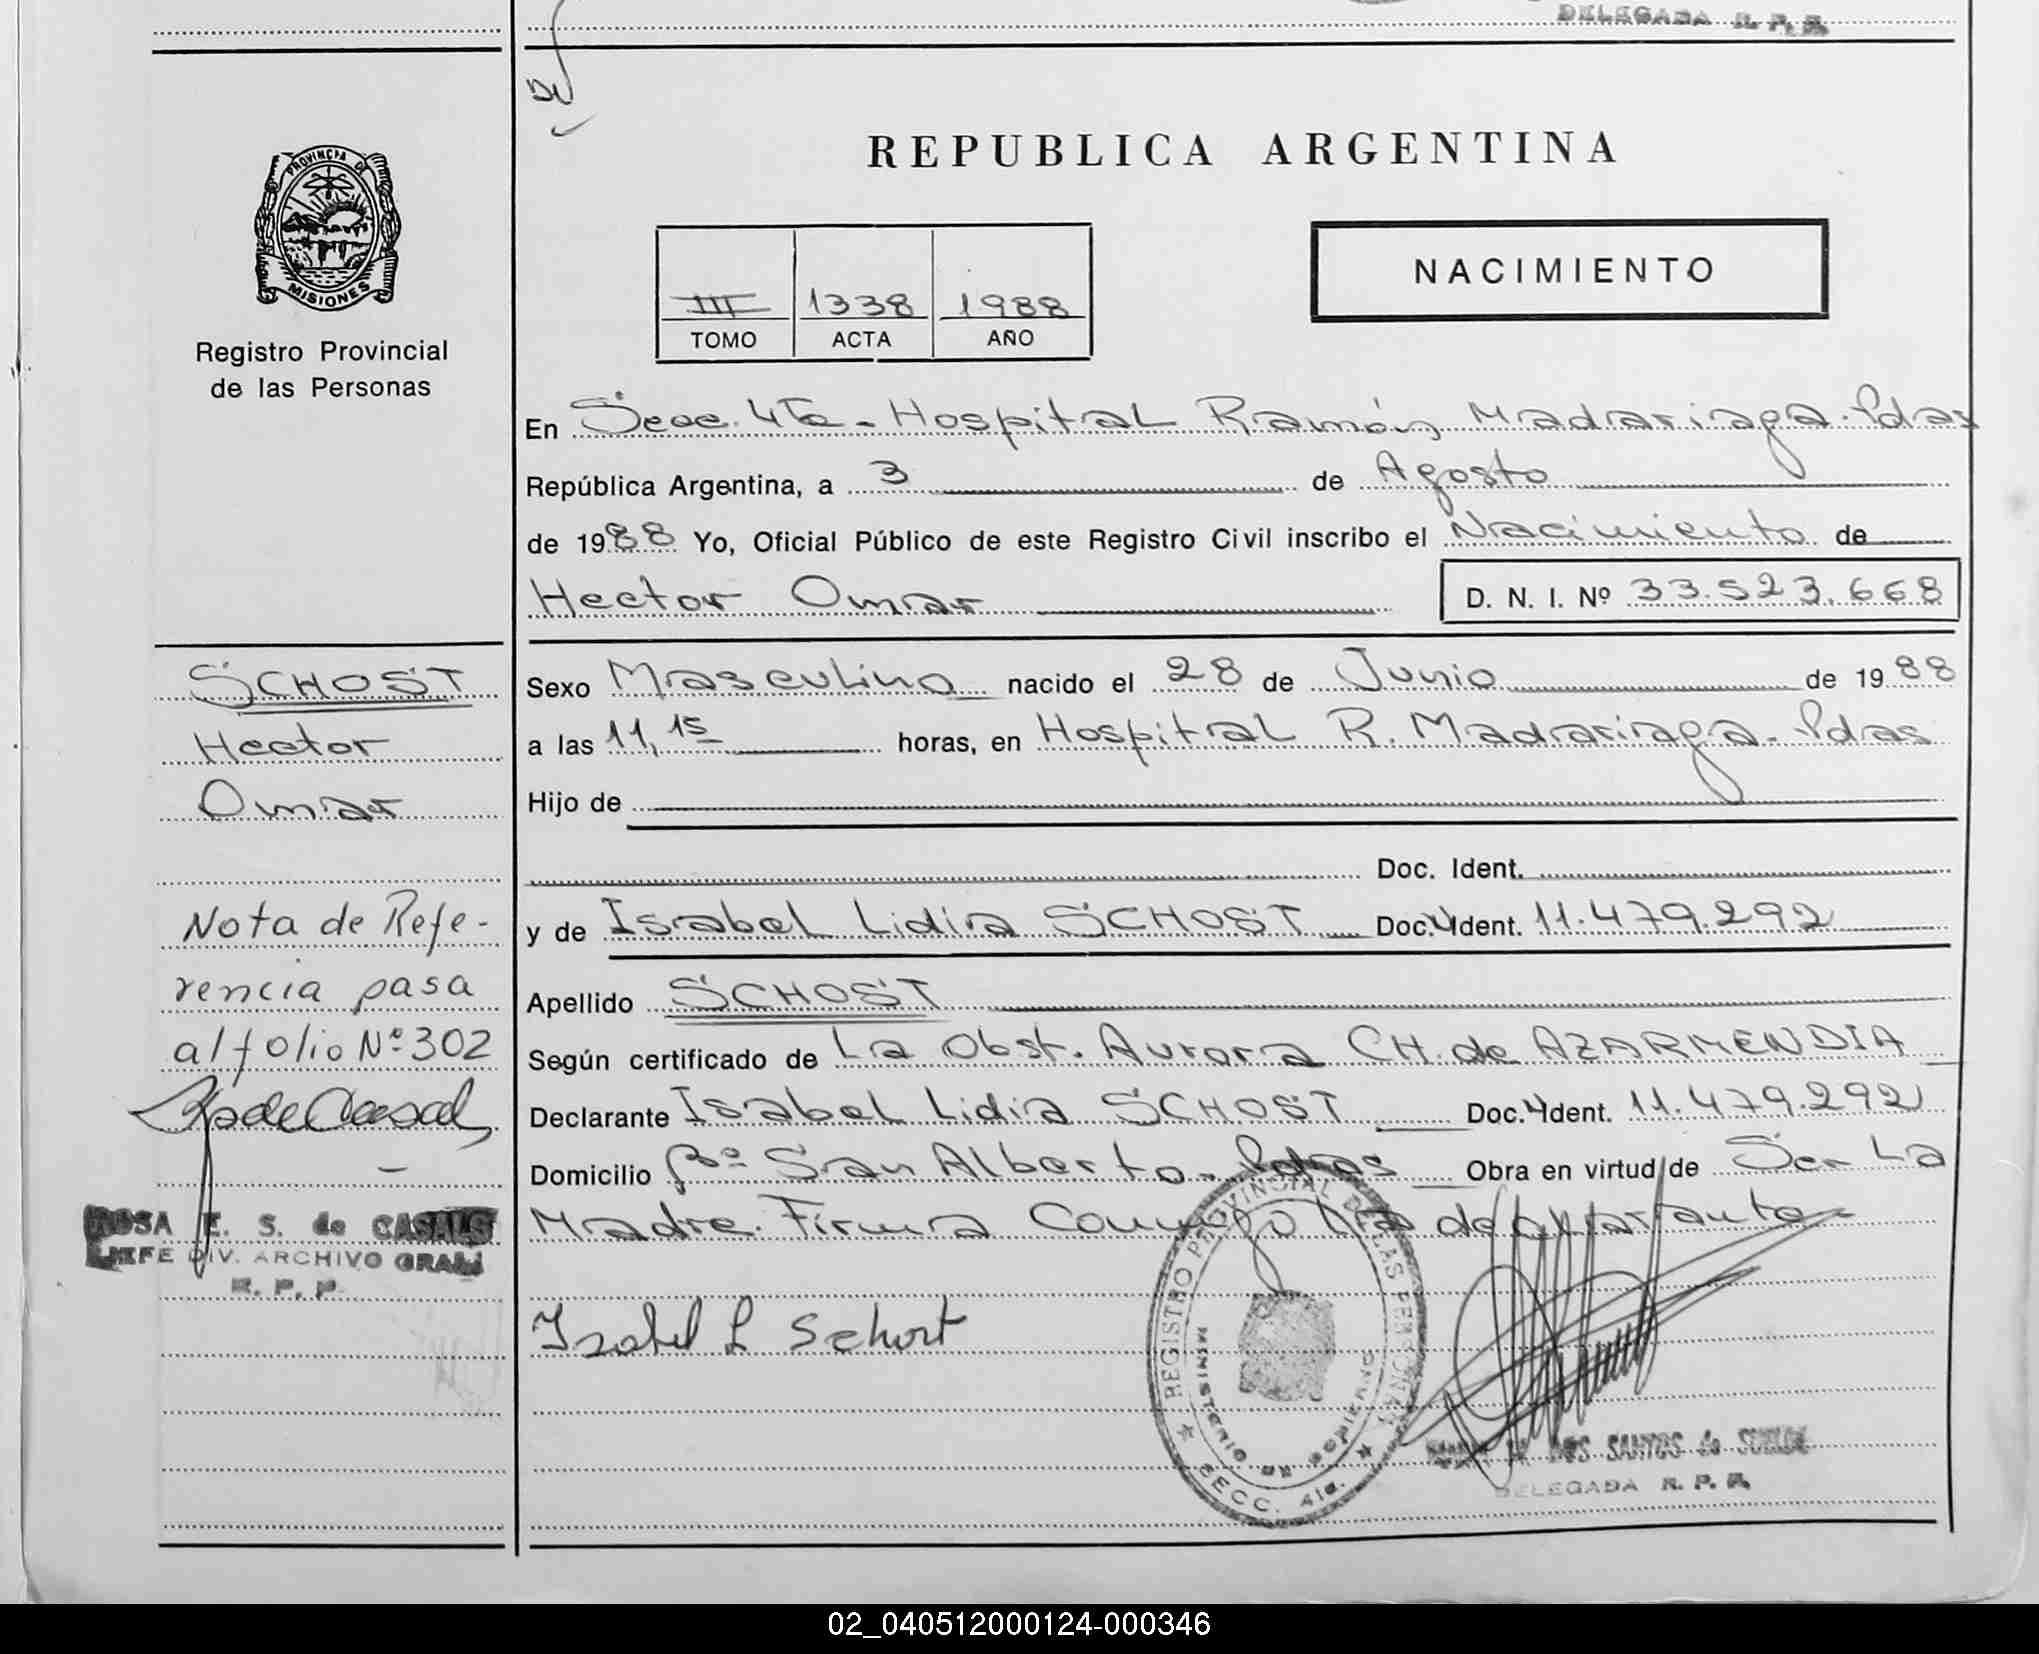 DELEGADA R. P. P.
REPUBLICA ARGENTINA
PROVINCIA DE
MISIONES
Registro Provincial
de las Personas
III 1338 1988
TOMO ACTA AÑO
NACIMIENTO
En Secc. 4ta - Hospital Ramón Madariaga - Pdas
República Argentina, a 3 de Agosto
de 1988 Yo, Oficial Público de este Registro Civil inscribo el Nacimiento de
Hector Omar D. N. I. Nº 33.523.668
SCHOST
Hector
Omar
Sexo Masculino nacido el 28 de Junio de 1988
a las 11,15 horas, en Hospital R. Madariaga - Pdas
Hijo de
Doc. Ident.
y de Isabel Lidia SCHOST Doc. Ident. 11.479.292
Apellido SCHOST
Según certificado de La Obst. Aurora CH. de AZARMENDIA
Declarante Isabel Lidia SCHOST Doc. Ident. 11.479.292
Domicilio Bº San Alberto - Pdas Obra en virtud de Ser La
Madre. Firma Conmigo La declarante
Isabel L Schost
Nota de Refe-
rencia pasa
al folio Nº 302
ROSA E. S. de CASALS
JEFE DIV. ARCHIVO GRAL
R. P. P.
REGISTRO PROVINCIAL DE LAS PERSONAS
MINISTERIO DE GOBIERNO
SECC. 4ta.
DOS SANTOS de
DELEGADA R. P. P.
02_040512000124-000346